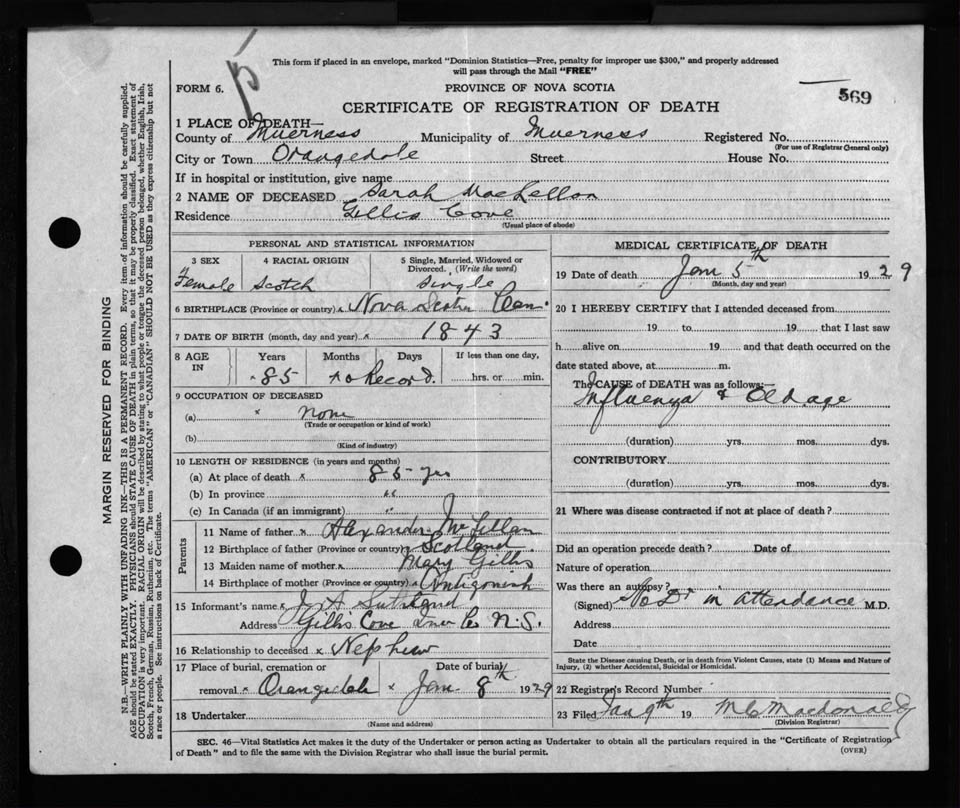 This form if placed in an envelope, marked "Dominion Statistics—Free, penalty for improper use $300," and properly addressed
will pass through the Mail "FREE"
FORM 6.
PROVINCE OF NOVA SCOTIA
569
CERTIFICATE OF REGISTRATION OF DEATH
1 PLACE OF DEATH—
County of Inverness Municipality of Inverness Registered No.
(For use of Registrar General only)
City or Town Orangedale Street House No.
If in hospital or institution, give name
2 NAME OF DECEASED Sarah MacLellan
Residence Gillis Cove
(Usual place of abode)
MARGIN RESERVED FOR BINDING
N.B.—WRITE PLAINLY WITH UNFADING INK—THIS IS A PERMANENT RECORD. Every item of information should be carefully supplied.
AGE should be stated EXACTLY. PHYSICIANS should STATE CAUSE OF DEATH in plain terms, so that it may be properly classified. Exact statement of
OCCUPATION is very important. RACIAL ORIGIN will be described by stating to what people or tongue the deceased person belonged, whether English, Irish,
Scotch, French, German, Russian, Ruthenian, etc. The terms "AMERICAN" or "CANADIAN" SHOULD NOT BE USED as they express citizenship but not
a race or people. See instructions on back of Certificate.
PERSONAL AND STATISTICAL INFORMATION
3 SEX 4 RACIAL ORIGIN 5 Single, Married, Widowed or
Divorced. (Write the word)
Female Scotch Single
6 BIRTHPLACE (Province or country) x Nova Scotia Can.
7 DATE OF BIRTH (month, day and year) x 1843
8 AGE
IN
Years Months Days If less than one day,
85 no Record. hrs. or min.
9 OCCUPATION OF DECEASED
(a) x none
(Trade or occupation or kind of work)
(b)
(Kind of industry)
10 LENGTH OF RESIDENCE (in years and months)
(a) At place of death x 85 yrs
(b) In province "
(c) In Canada (if an immigrant) "
Parents
11 Name of father x Alexander McLellan
12 Birthplace of father (Province or country) Scotland
13 Maiden name of mother x Mary Gillis
14 Birthplace of mother (Province or country) x Antigonish
15 Informant's name x J A Sutherland
Address Gillis Cove Inver Co N.S.
16 Relationship to deceased x Nephew
17 Place of burial, cremation or Date of burial
removal x Orangedale x Jan 8th 1929
18 Undertaker
(Name and address)
MEDICAL CERTIFICATE OF DEATH
19 Date of death Jan 5th 1929
(Month, day and year)
20 I HEREBY CERTIFY that I attended deceased from
19 to 19 that I last saw
h alive on 19 and that death occurred on the
date stated above, at m.
The CAUSE of DEATH was as follows:—
Influenza & Old age
(duration) yrs. mos. dys.
CONTRIBUTORY
(duration) yrs. mos. dys.
21 Where was disease contracted if not at place of death?
Did an operation precede death? Date of
Nature of operation
Was there an autopsy?
(Signed) No Dr in attendance M.D.
Address
Date
State the Disease causing Death, or in death from Violent Causes, state (1) Means and Nature of
Injury, (2) whether Accidental, Suicidal or Homicidal.
22 Registrar's Record Number
23 Filed Jan 9th 19 M C Macdonald
(Division Registrar)
SEC. 46—Vital Statistics Act makes it the duty of the Undertaker or person acting as Undertaker to obtain all the particulars required in the "Certificate of Registration
of Death" and to file the same with the Division Registrar who shall issue the burial permit.
(OVER)